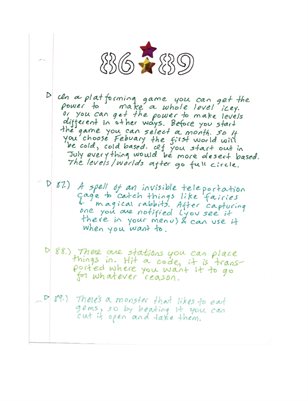 86 89
In a platforming game you can get the
power to make a whole level icey.
Or you can get the power to make levels
different in other ways. Before you start
the game you can select a month. So if
you choose Febuary the first world will
be cold, cold based. If you start out in
July everything would be more desert based.
The levels/worlds after go full circle.
87.) A spell of an invisible teleportation
cage to catch things like fairies
& magical rabbits. After capturing
one you are notified (you see it
there in your menu) & can use it
when you want to.
88.) There are stations you can place
things in. Hit a code, it is trans-
ported where you want it to go
for whatever reason.
89.) There's a monster that likes to eat
gems, so by beating it you can
cut it open and take them.